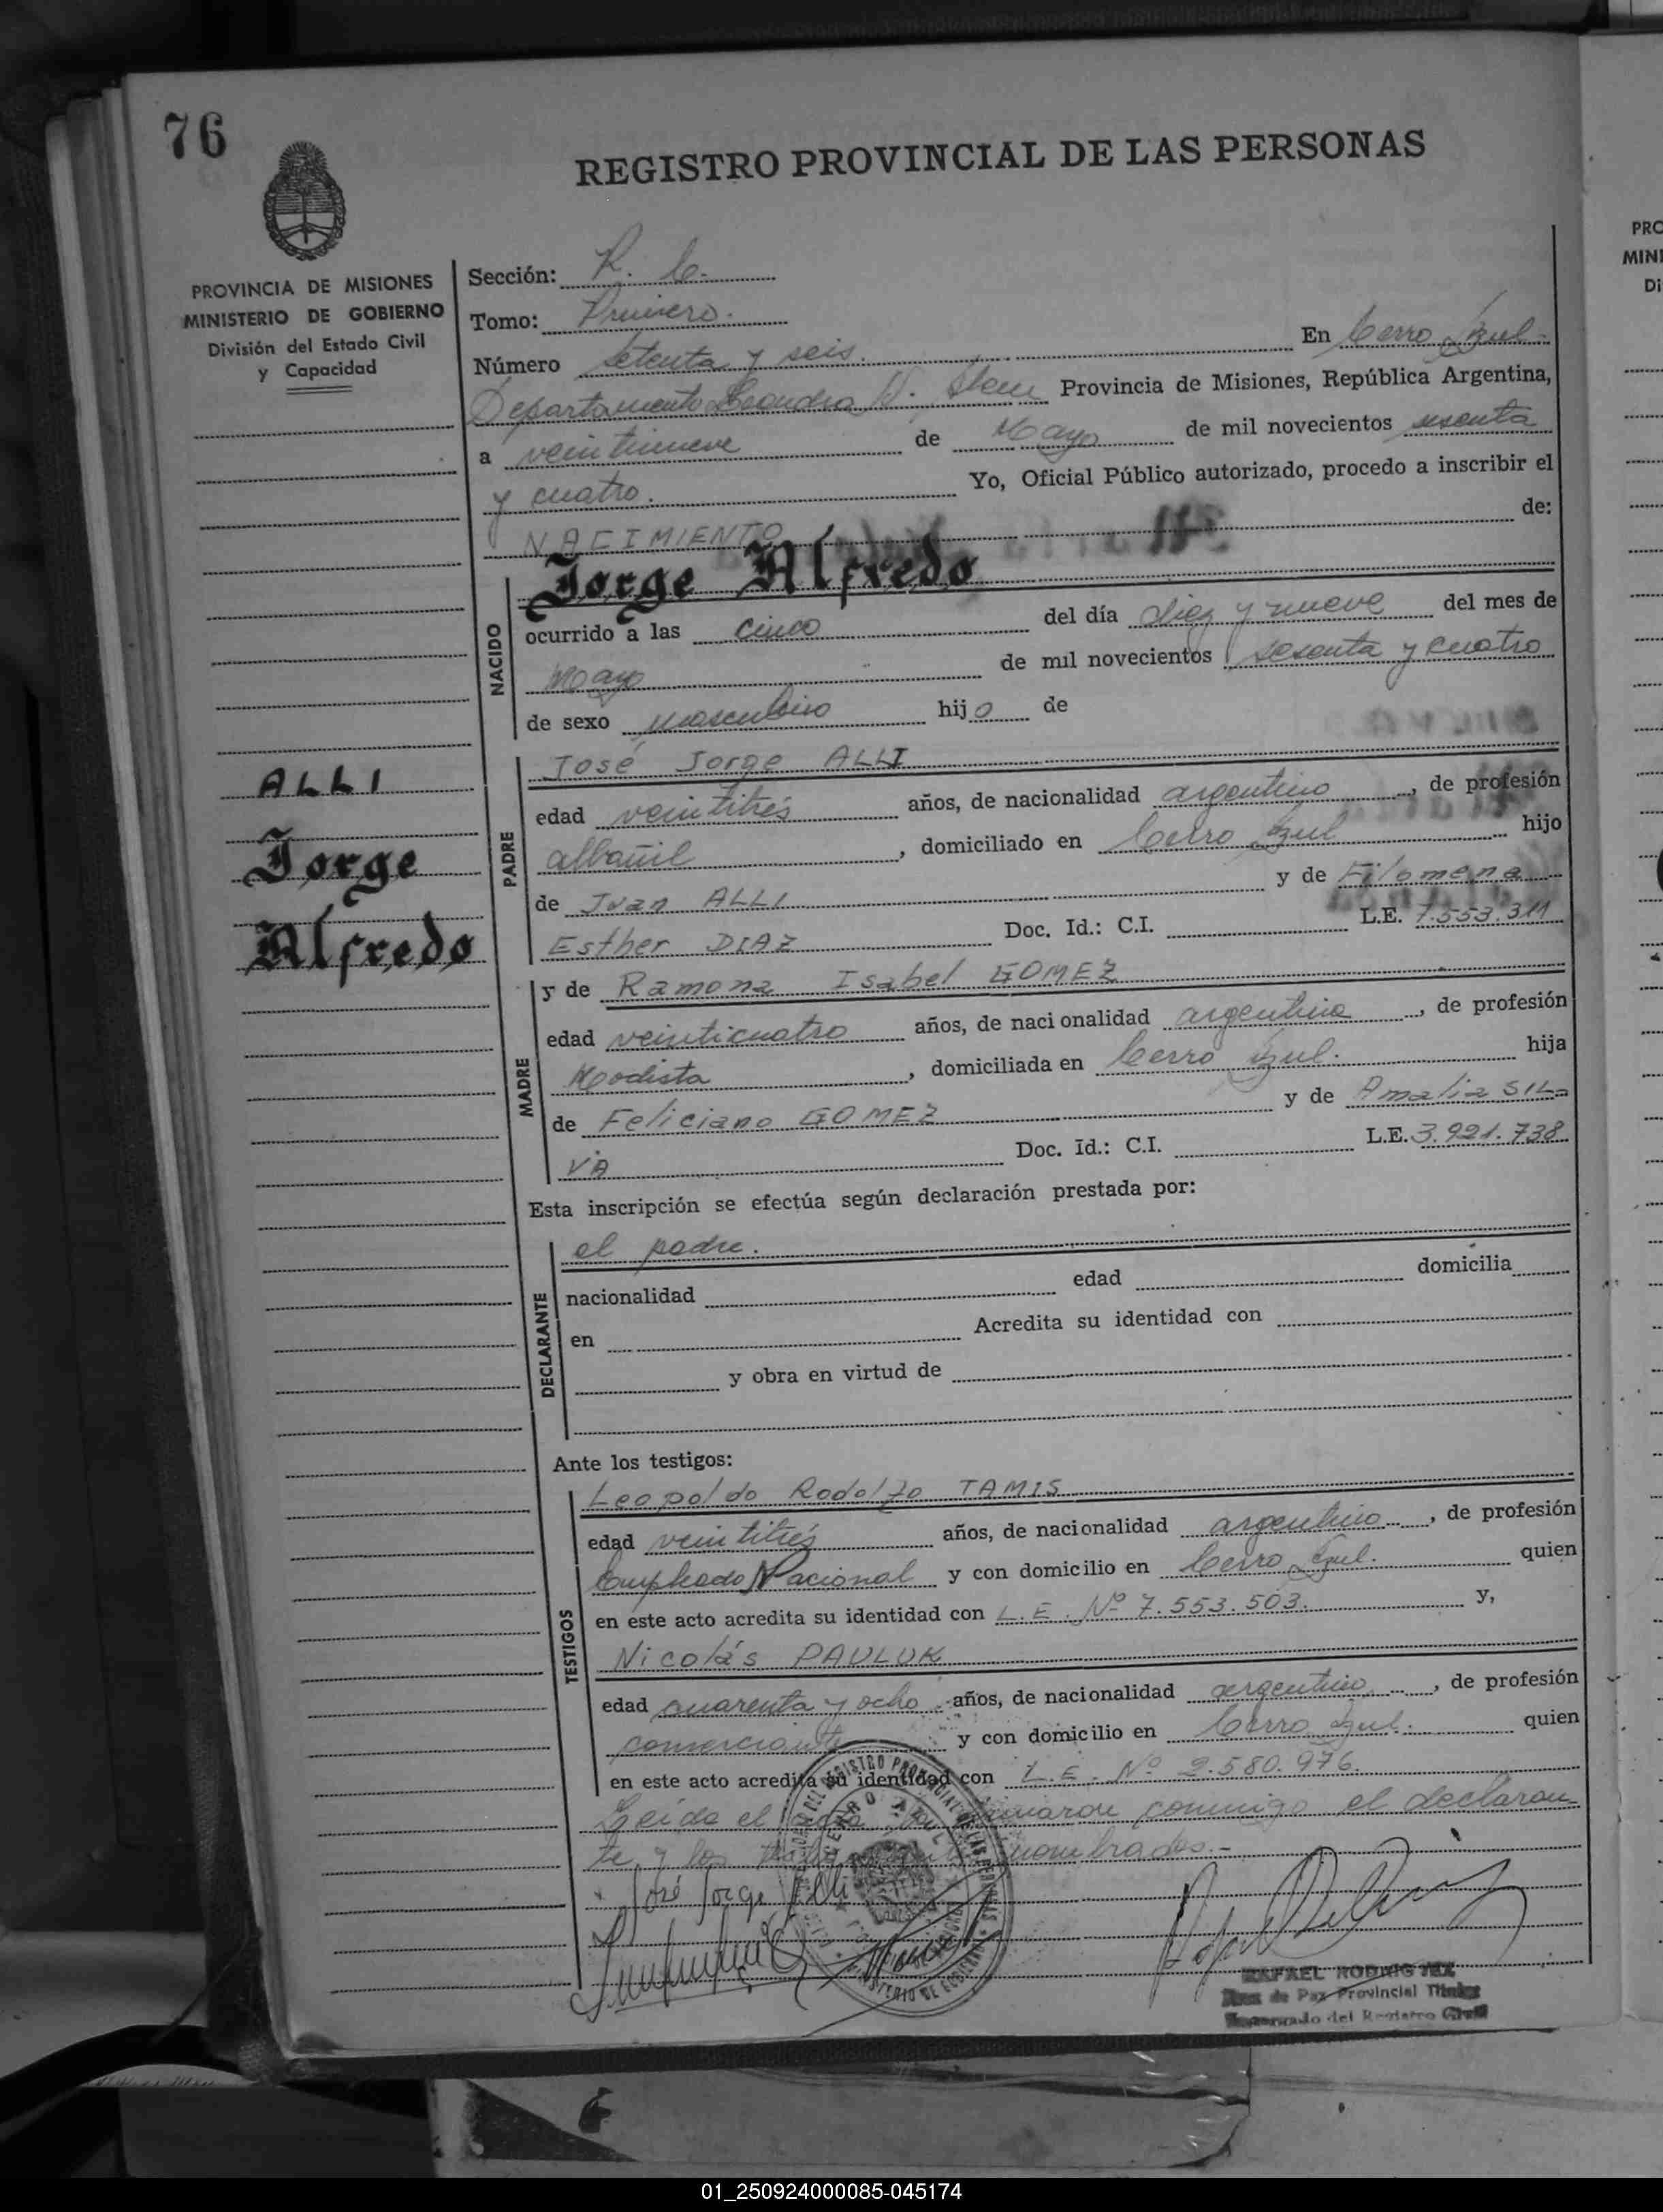 76
REGISTRO PROVINCIAL DE LAS PERSONAS
PROVINCIA DE MISIONES
MINISTERIO DE GOBIERNO
División del Estado Civil
y Capacidad
Sección: R. C.
Tomo: Primero.
Número setenta y seis. En Cerro Azul.
Departamento Leandro N. Alem Provincia de Misiones, República Argentina,
a veintinueve de Mayo de mil novecientos sesenta
y cuatro. Yo, Oficial Público autorizado, procedo a inscribir el
NACIMIENTO de:
NACIDO
Jorge Alfredo
ocurrido a las cinco del día diez y nueve del mes de
Mayo de mil novecientos sesenta y cuatro
de sexo masculino hijo de
ALLI
Jorge
Alfredo
PADRE
José Jorge ALLI
edad veintitrés años, de nacionalidad argentino, de profesión
albañil, domiciliado en Cerro Azul hijo
de Juan ALLI y de Filomena
Esther DIAZ Doc. Id.: C.I. L.E. 7.553.311
MADRE
y de Ramona Isabel GOMEZ
edad veinticuatro años, de nacionalidad argentina, de profesión
Modista, domiciliada en Cerro Azul. hija
de Feliciano GOMEZ y de Amalia SIL-
VA Doc. Id.: C.I. L.E. 3.921.738
Esta inscripción se efectúa según declaración prestada por:
DECLARANTE
el padre.
nacionalidad edad domicilia
en Acredita su identidad con
y obra en virtud de
Ante los testigos:
TESTIGOS
Leopoldo Rodolfo TAMIS
edad veintitrés años, de nacionalidad argentino, de profesión
Empleado Nacional y con domicilio en Cerro Azul. quien
en este acto acredita su identidad con L.E. Nº 7.553.503. y,
Nicolás PAULUK
edad cuarenta y ocho años, de nacionalidad argentino, de profesión
comerciante y con domicilio en Cerro Azul. quien
en este acto acredita su identidad con L.E. Nº 2.580.976.
Leída el acta firmaron conmigo el declaran-
te y los nombrados.-
José Jorge Alli
RAFAEL RODRIGUEZ
Juez de Paz Provincial Titular
Encargado del Registro Civil
PRO
MINI
Di
01_250924000085-045174